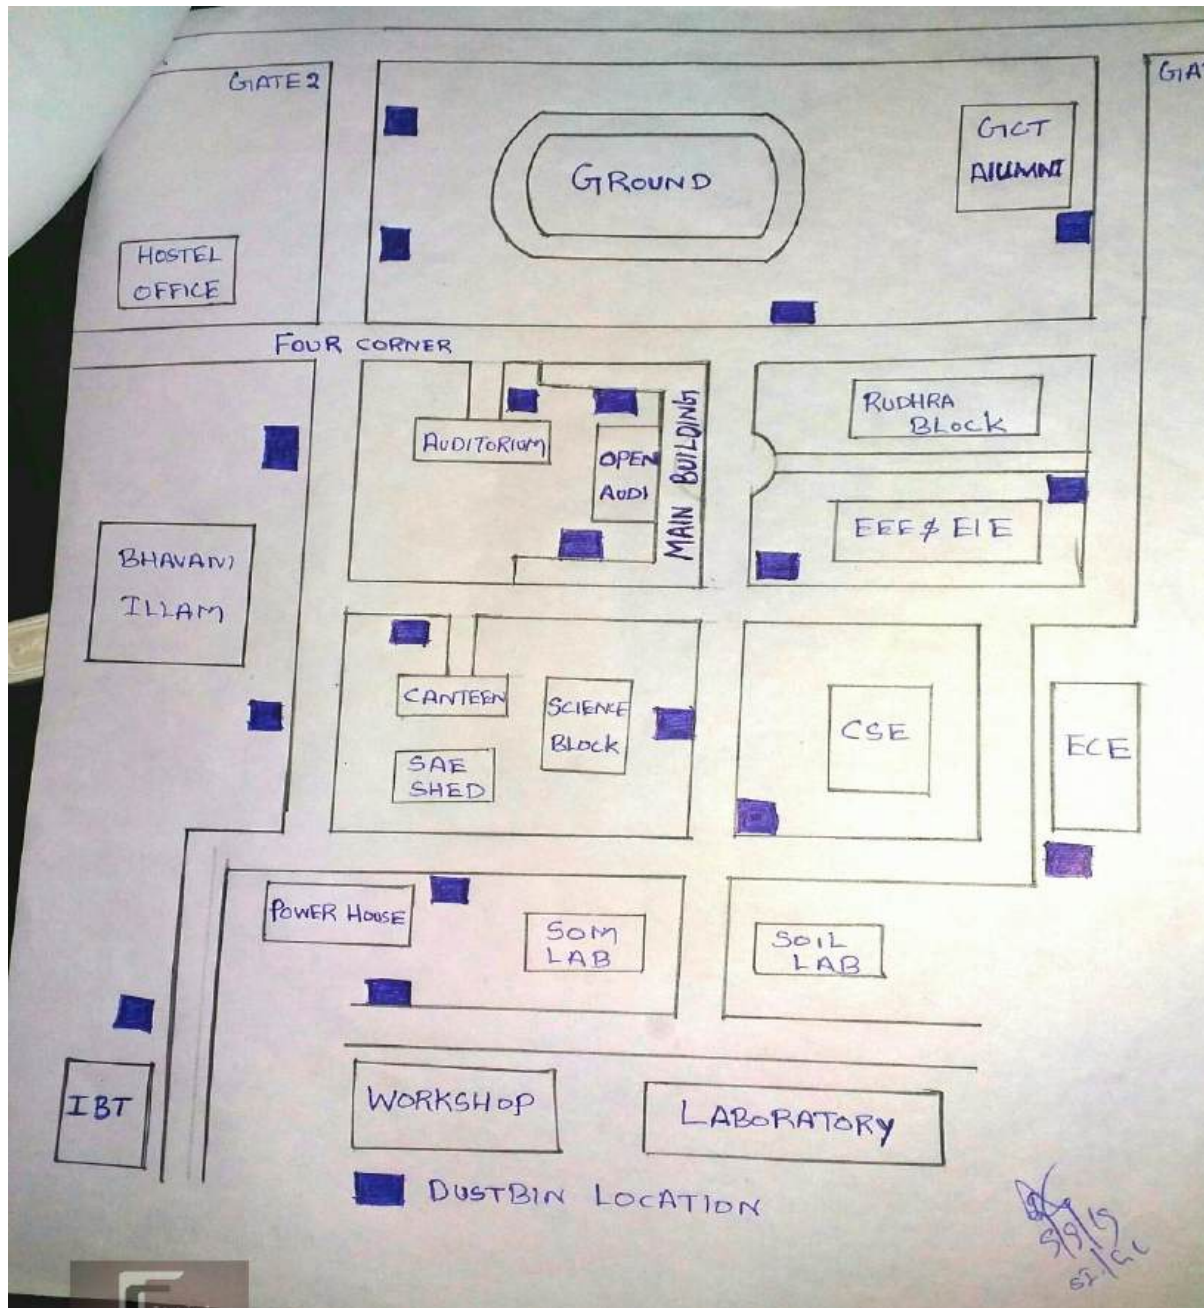 GATE 2
GA
GROUND
GCT
AlUMNI
HOSTEL
OFFICE
FOUR CORNER
RUDHRA
BLOCK
AUDITORIUM
OPEN
AUDI
MAIN BUILDING
EEE & EIE
BHAVANI
ILLAM
CANTEEN
SCIENCE
BLOCK
SAE
SHED
CSE
ECE
POWER HOUSE
SOM
LAB
SOIL
LAB
IBT
WORKSHOP
LABORATORY
DUSTBIN LOCATION